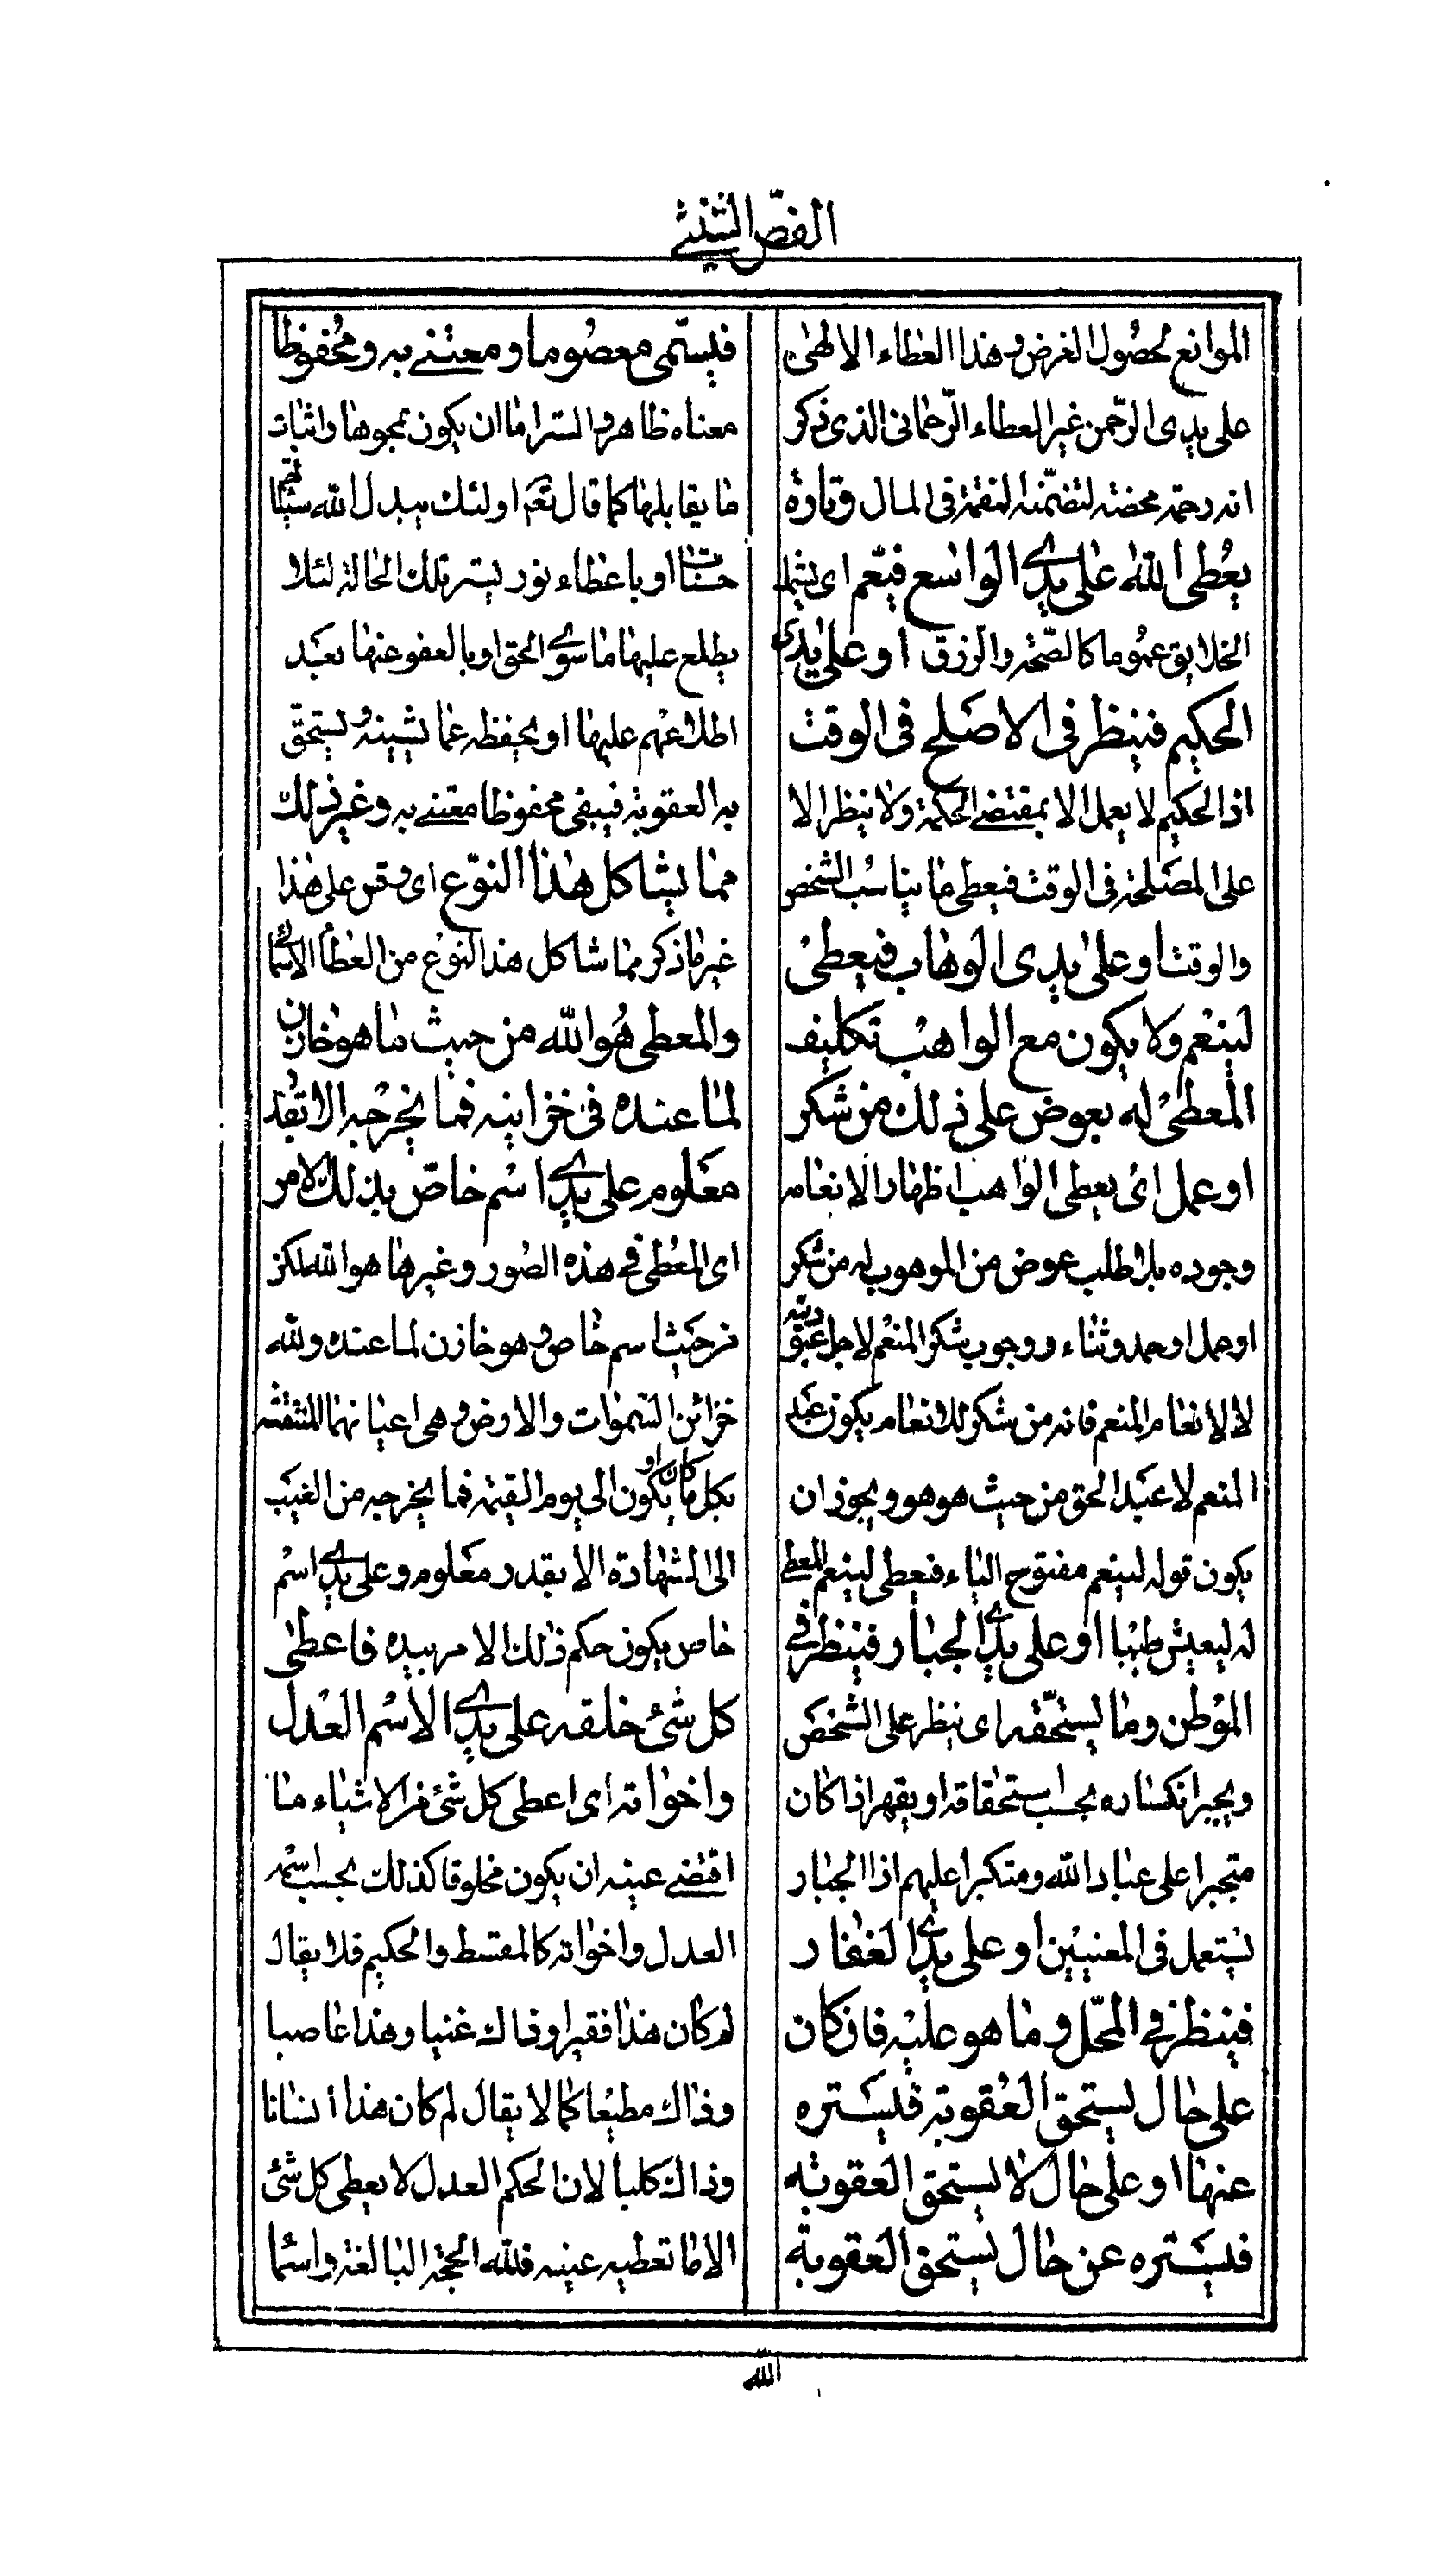 الفصّ الشيثي
الموانع لحصول الغرض وهذا العطاء الالهي
على يدى الرّحمن غير العطاء الرّحماني الذى ذكر
انه رحمة محضة لتضمّنه النقمة في المال وتارة
يعُطى الله على يدي الواسع فيعّم اى يشمل
الخلايق عمُوما كالصّحة والرزق او على يدى
الحكيم فينظر فى الاصَلح فى الوقت
اذ الحكيم لا يعمل الا بمقتضى الحكمة ولا ينظر الا
على المصَلحة فى الوقت فيعطى ما يناسب الشخص
والوقت او على يدى الوهاب فيعطىُ
لينعْم ولا يكون مع الواهب تكليف
المعطىُ له بعوض على ذلك من شكر
او عمل اىُ يعطى الواهب اظهارا لانعامه
وجوده بلا طلب عوض من الموهوب له من شكر
او عمل او حمد وثناء ووجوب شكر المنعْم لاجل عبوديته
لا لانعام المنعم فانه من شكر للانعام يكون عبد
المنعم لا عبَد الحق من حيث هو هو ويجوز ان
يكون قوله لينعم مفتوح الياء فيعطى لينعم المعطى
له ليعيش طيبا او على يدي الجبار فينظر في
الموْطن وما يستحّقه اى ينظر على الشخص
ويجبر انكساره بحسب استحقاقه او يقهر اذا كان
متجبرا على عباد الله ومتكبرا عليهم اذ الجبار
يستعمل فى المعنيْين او على يدي الغفار
فينظر في المحّل وما هو عليْه فان كان
على حال يستحق العُقوبة فيسَتره
عنها او على حال لا يستحق العقوبة
فيسَتره عن حال يستحق العَقوبة
فيسّمى معصُوما ومعتنى به ومحُفوظا
معناه ظاهر والستر اما ان يكون بمحوها واثبات
ما يقابلها كما قال تعم اولئك يبدل الله سيئاتهم
حسنات او باعطاء نور يستر تلك الحالة لئلا
يطلع عليها ما سوي الحق او بالعفو عنها بعَد
اطلاعهم عليها او يحفظه عما يشينه ويستحقّ
به العقوبة فيبقى محفوظا معتنى به وغير ذلك
مما يشاكل هذا النوّع اى وقس على هذا
غير ما ذكر مما شاكل هذا النوع من العطاء الاسمائي
والمعطى هُو الله من حيث ما هو خازن
لما عنده فى خزاينه فما يخرجْه الا بقُدر
معَلوم على يدي اسْم خاصّ بذلك الامر
اى المعُطى في هذه الصُور وغيرها هو الله لكن
من حَيث اسم خاص وهو خازن لما عنده ولله
خزائن السّموات والارض وهى اعيانهما المنتقشه
بكل ما كان او يكون الى يوم القيمة فما يخرجه من الغيَب
الى الشهادة الا بقدر معَلوم وعلى يدي اسْم
خاص يكون حكم ذلك الامر بيده فاعطى
كل شئ خلقه على يدي الاسْم العَدل
واخواته اى اعطى كل شئ من الاشياء ما
اقتضى عينه ان يكون مخلوقا كذلك بحسب اسمه
العدل واخواته كالمقسط والحكيم فلا يقال
لم كان هذا فقيرا وذاك غنيا وهذا عاصيا
وذاك مطيعُا كما لا يقال لم كان هذا انسانا
وذاك كلبا لان الحكم العدل لا يعطى كل شئ
الا ما تعطيه عينه فلله الحجة البالغة واسما
الله